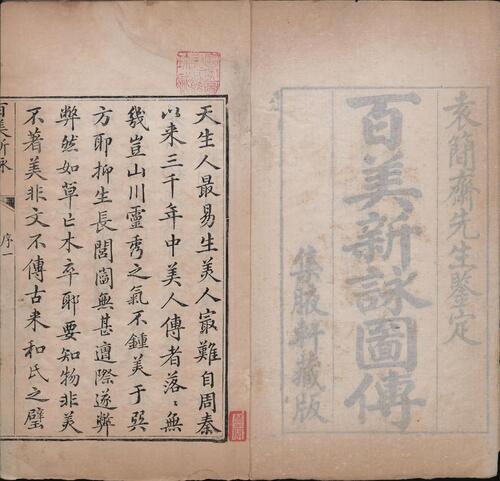 袁簡齋先生鑒定
百美新詠圖傳
集腋軒藏版
天生人最易生美人寂難自周秦
以來三千年中美人傳者落〻無
幾豈山川靈秀之氣不鍾美于巽
方耶抑生長閨閫無甚遭際遂與
弊然如草亡木卒耶要知物非美
不著美非文不傳古來和氏之璧
百美新詠
序一